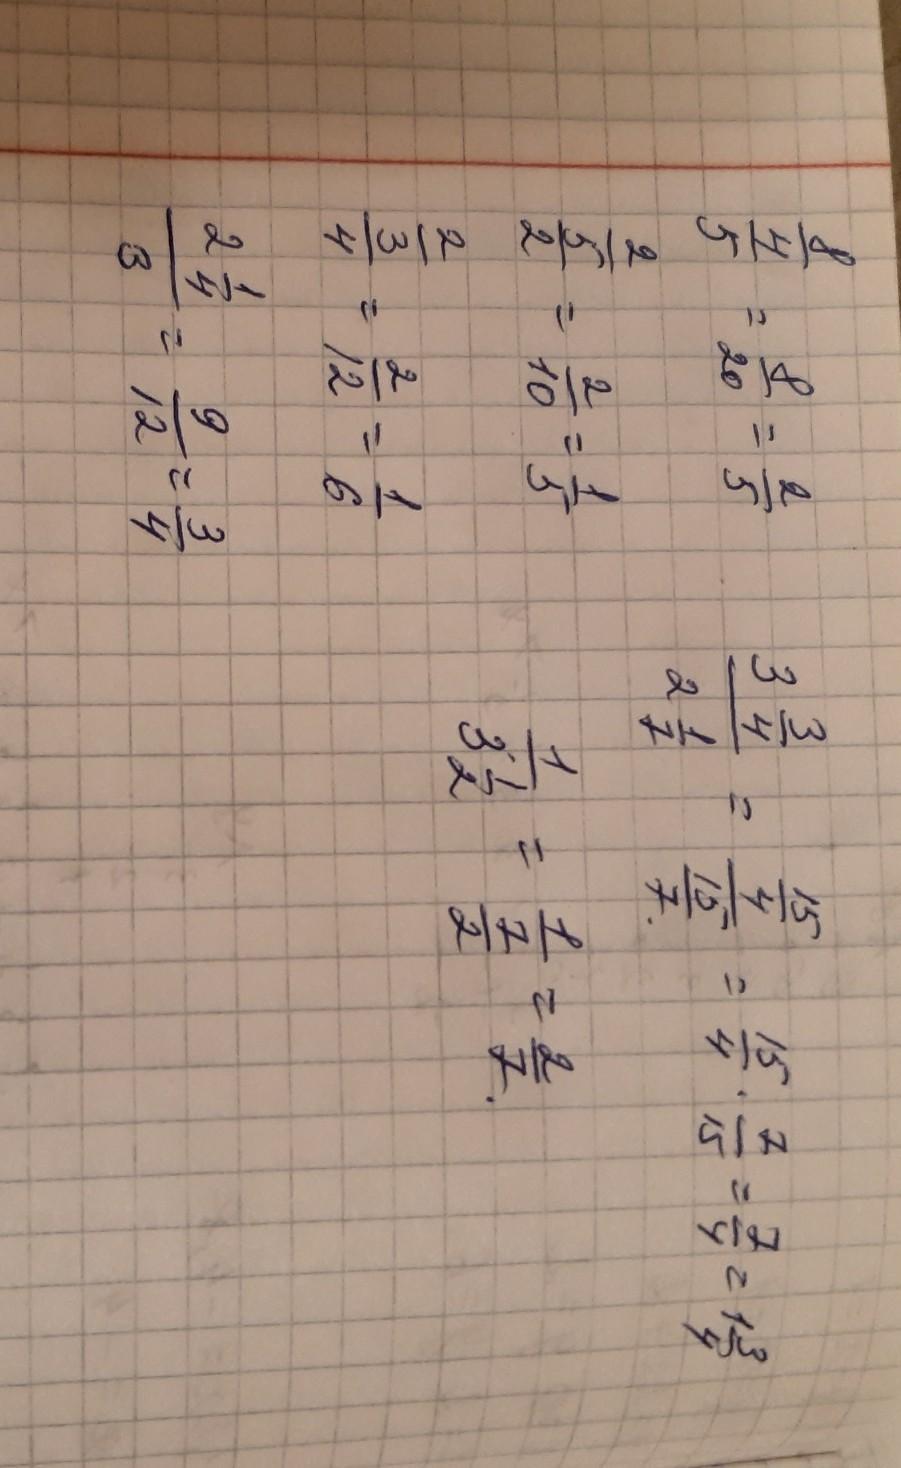 8/4/5 = 8/20 = 2/5
2/5/2 = 2/10 = 1/5
2/3/4 = 2/12 = 1/6
2 1/4 / 3 = 9/12 = 3/4
3 3/4 / 2 1/7 = 15/4 / 15/7 = 15/4 · 7/15 = 7/4 = 1 3/4
1 / 3 1/2 = 1 / 7/2 = 2/7.